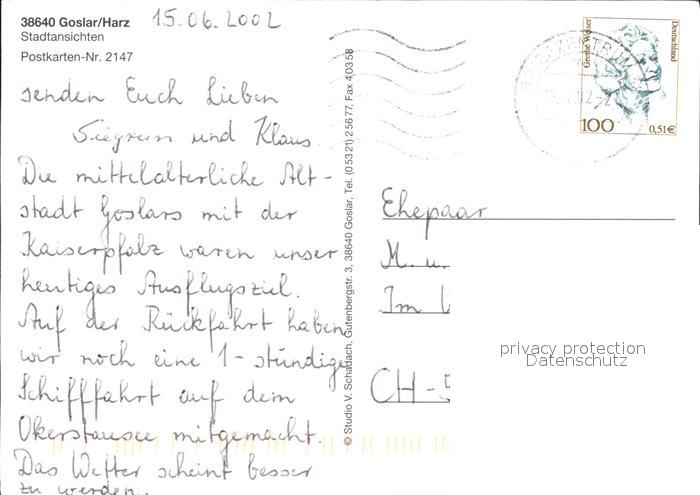 38640 Goslar/Harz
Stadtansichten
Postkarten-Nr. 2147
15.06.2002
senden Euch Lieben
Siegrun und Klaus.
Die mittelalterliche Alt-
stadt Goslars mit der
Kaiserpfalz waren unser
heutiges Ausflugsziel.
Auf der Rückfahrt haben
wir noch eine 1-stündige
Schifffahrt auf dem
Okerstausee mitgemacht.
Das Wetter scheint besser
zu werden.
© Studio V. Schadach, Gutenbergstr. 3, 38640 Goslar, Tel. (05321) 25677, Fax 40358
Grethe Weiser
Deutschland
100
0,51€
Ehepaar
M. u.
Im
CH-5
privacy protection
Datenschutz